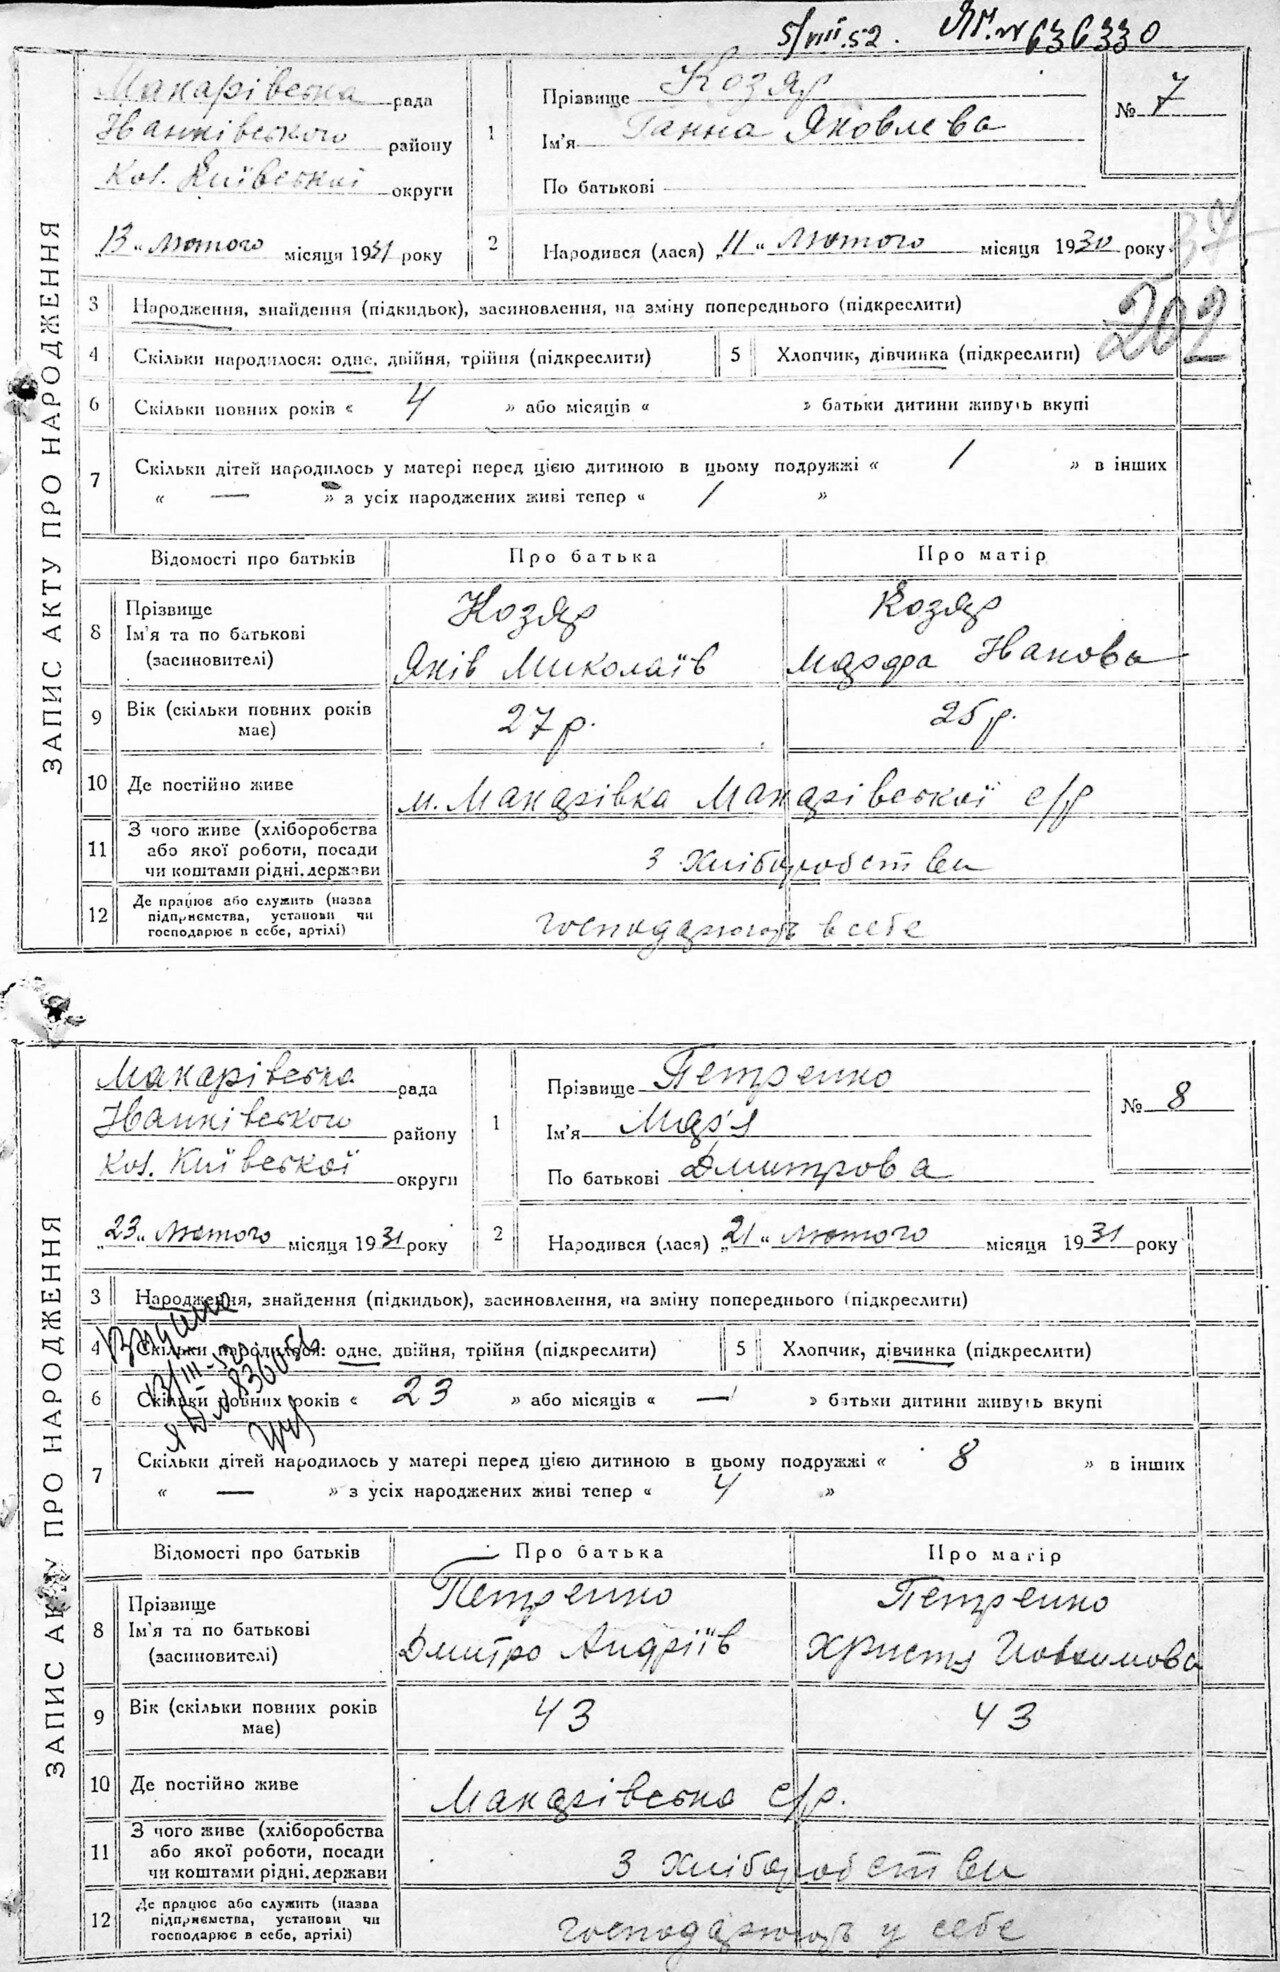 5/VIII.52. ЯМ. № 636330
ЗАПИС АКТУ ПРО НАРОДЖЕННЯ
Макарівська рада
Іванківського району
Кол. Київської округи
„13“ Лютого місяця 1931 року
1 Прізвище Козяр
Ім'я Ганна Яковлева
По батькові
№ 7
2 Народився (лася) „11“ Лютого місяця 1930 року
37
202
3 Народження, знайдення (підкидьок), засиновлення, на зміну попереднього (підкреслити)
4 Скільки народилося: одне, двійня, трійня (підкреслити) 5 Хлопчик, дівчинка (підкреслити)
6 Скільки повних років « 4 » або місяців « » батьки дитини живуть вкупі
7 Скільки дітей народилось у матері перед цією дитиною в цьому подружжі « 1 » в інших
« — » з усіх народжених живі тепер « 1 »
Відомості про батьків Про батька Про матір
8 Прізвище Козяр Козяр
Ім'я та по батькові Яків Миколаїв Марфа Іванова
(засиновителі)
9 Вік (скільки повних років має) 27 р. 25 р.
10 Де постійно живе м. Макарівка Макарівської с/р
11 З чого живе (хліборобства або якої роботи, посади чи коштами рідні, держави З хліборобства
12 Де працює або служить (назва підприємства, установи чи господарює в себе, артілі) господарюють в себе
ЗАПИС АКТУ ПРО НАРОДЖЕННЯ
Макарівська рада
Іванківського району
Кол. Київської округи
„23“ Лютого місяця 1931 року
1 Прізвище Петренко
Ім'я Мар'я
По батькові Дмитрова
№ 8
2 Народився (лася) „21“ Лютого місяця 1931 року
3 Народження, знайдення (підкидьок), засиновлення, на зміну попереднього (підкреслити)
4 Скільки народилося: одне, двійня, трійня (підкреслити) 5 Хлопчик, дівчинка (підкреслити)
6 Скільки повних років « 23 » або місяців « — » батьки дитини живуть вкупі
7 Скільки дітей народилось у матері перед цією дитиною в цьому подружжі « 8 » в інших
« — » з усіх народжених живі тепер « 4 »
Відомості про батьків Про батька Про матір
8 Прізвище Петренко Петренко
Ім'я та по батькові Дмитро Андріїв Христя
(засиновителі)
9 Вік (скільки повних років має) 43 43
10 Де постійно живе Макарівська с/р.
11 З чого живе (хліборобства або якої роботи, посади чи коштами рідні, держави З хліборобства
12 Де працює або служить (назва підприємства, установи чи господарює в себе, артілі) господарюють у себе